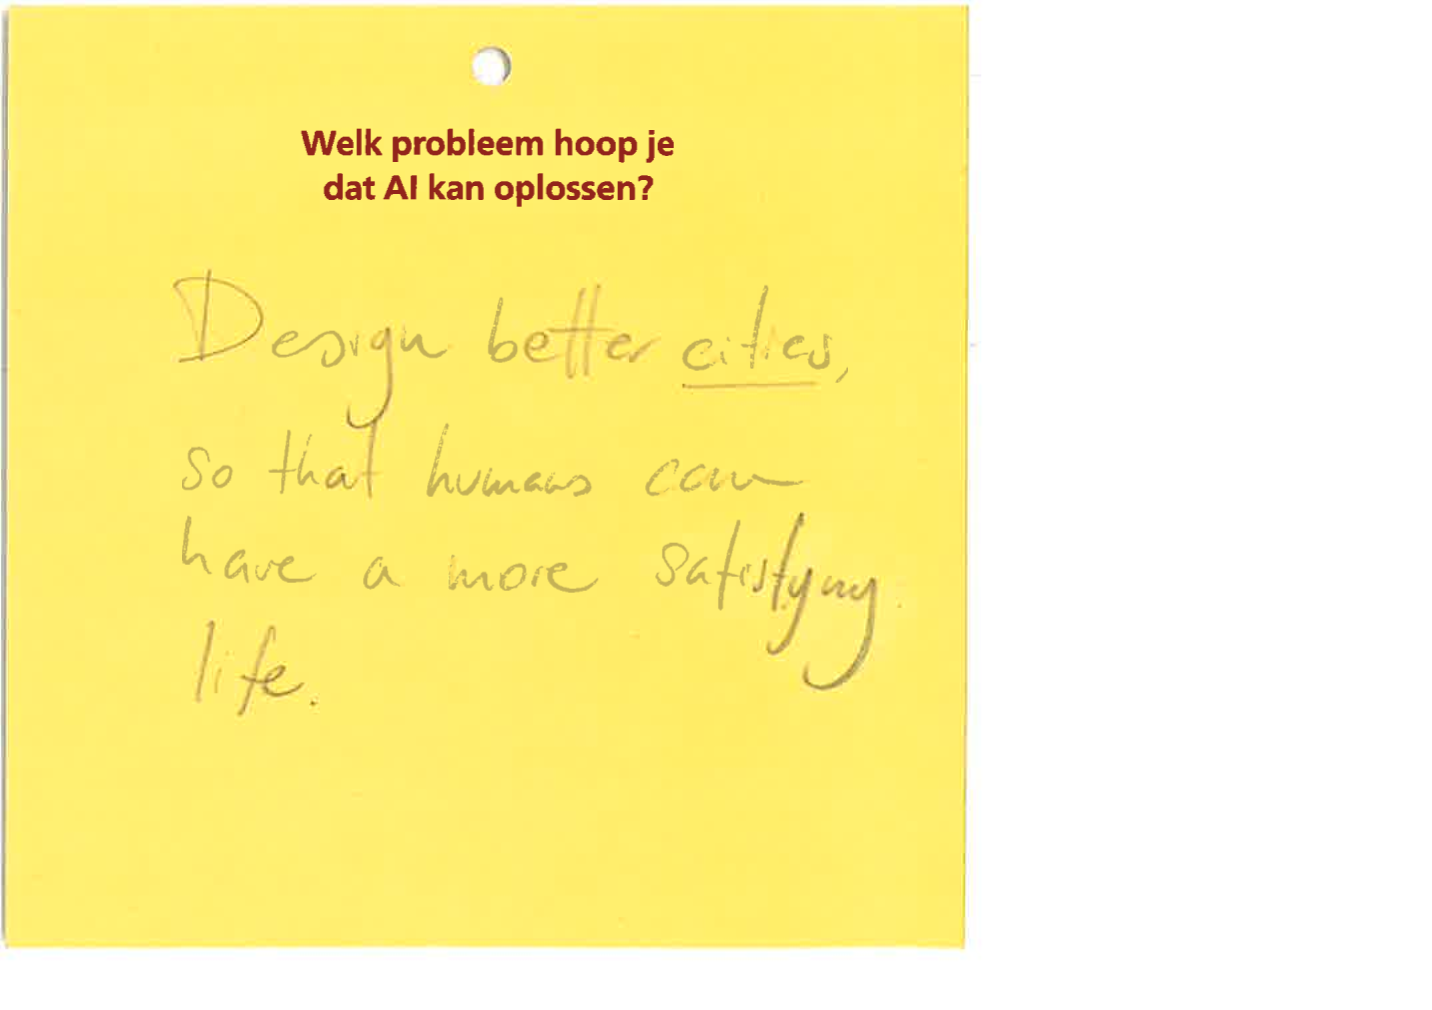 Welk probleem hoop je
dat AI kan oplossen?
Design better cities,
so that humans can
have a more satisfying
life.